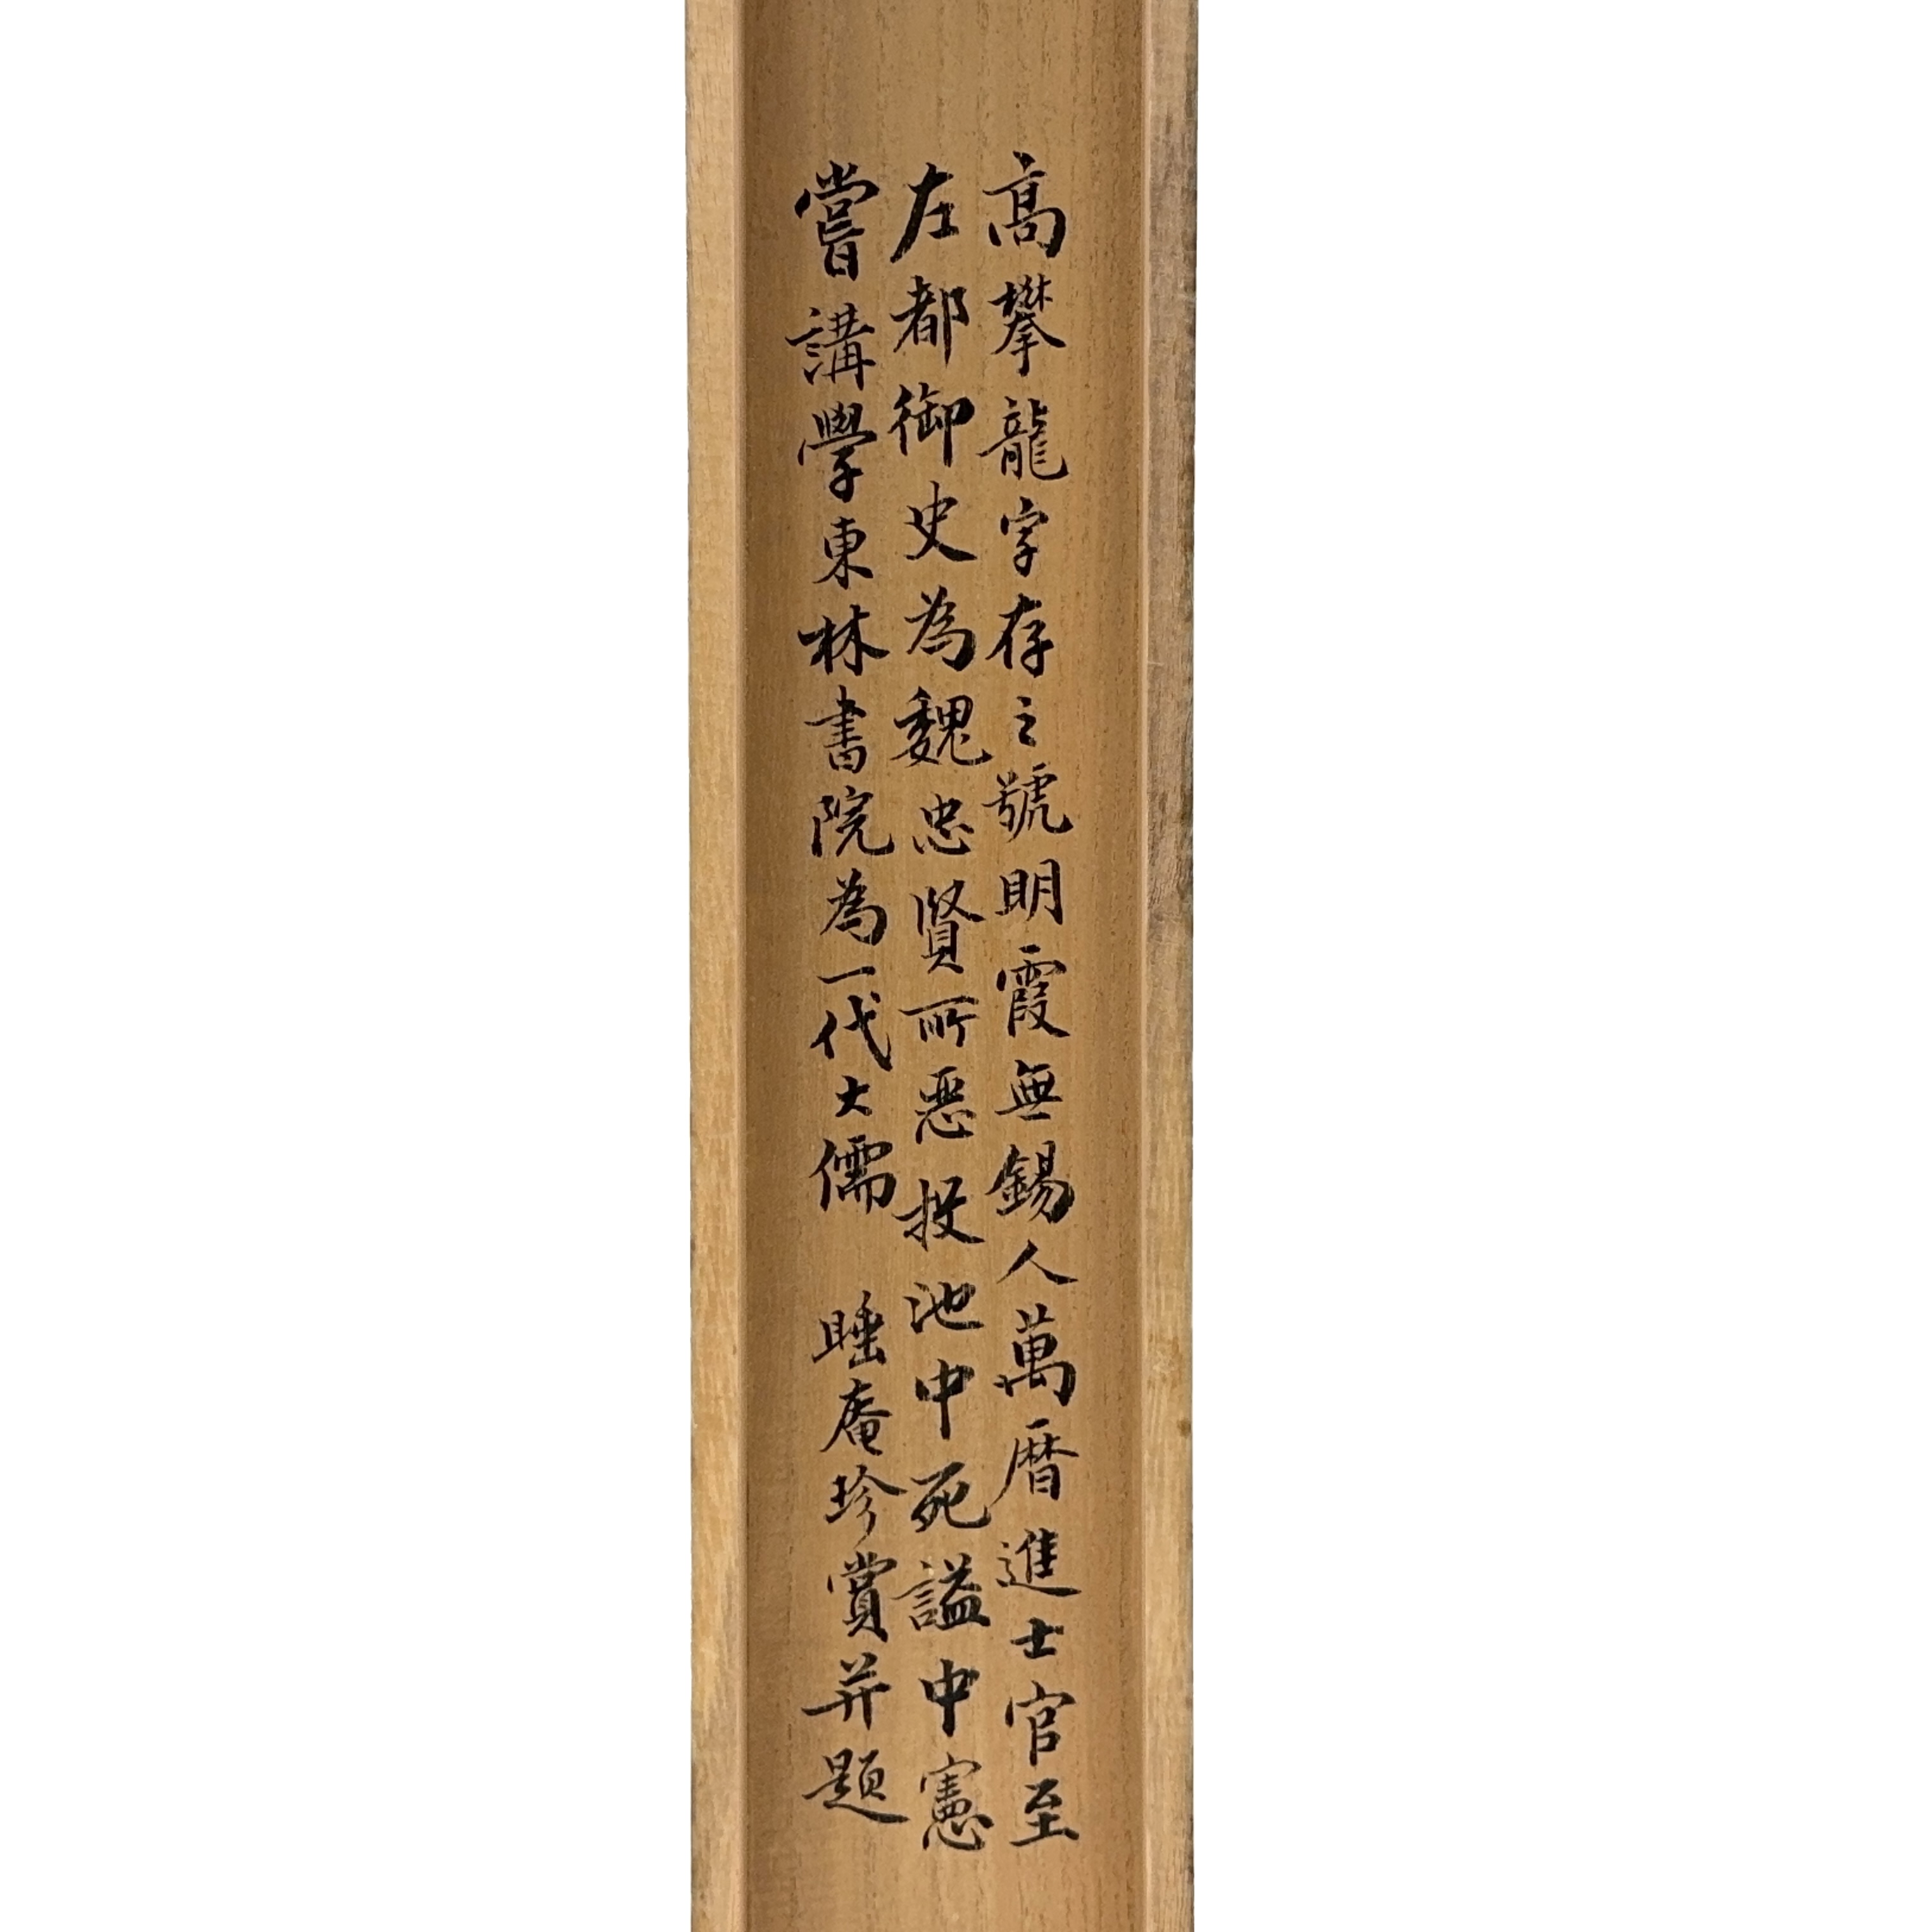 高攀龍字存之號明霞無錫人萬曆進士官至
左都御史為魏忠賢所惡投池中死謚中憲
嘗講學東林書院為一代大儒　睡庵珍賞并題